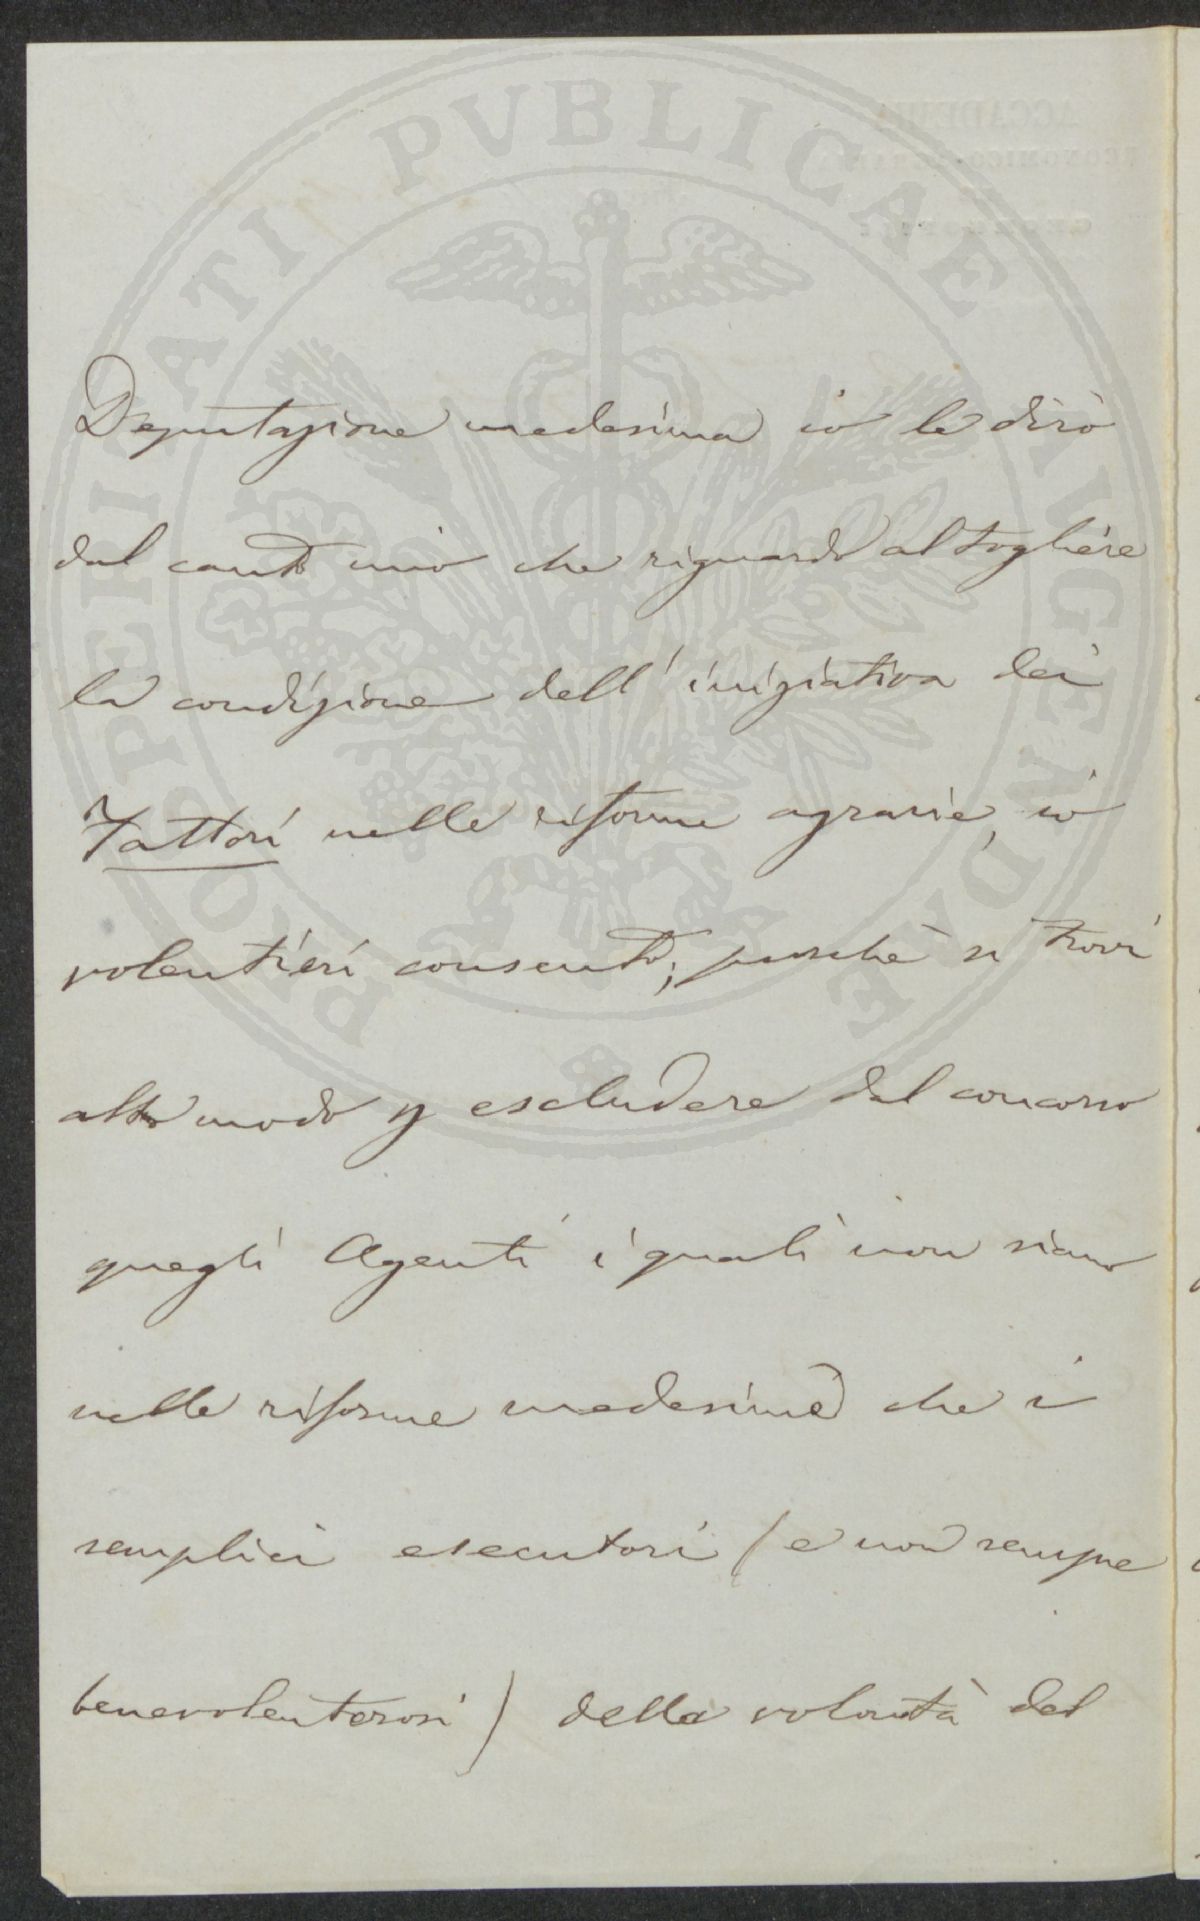 PROSPERITATI PUBLICAE AUGENDAE
Deputazione medesima io le dirò
dal canto mio che riguardo al togliere
la condizione dell' iniziativa dei
Fattori nelle riforme agrarie, io
volentieri consento; purchè si trovi
altro modo p escludere dal concorso
quegli Agenti i quali non siano
nelle riforme medesime che i
semplici esecutori (e non sempre
benevolenterosi) della volontà del